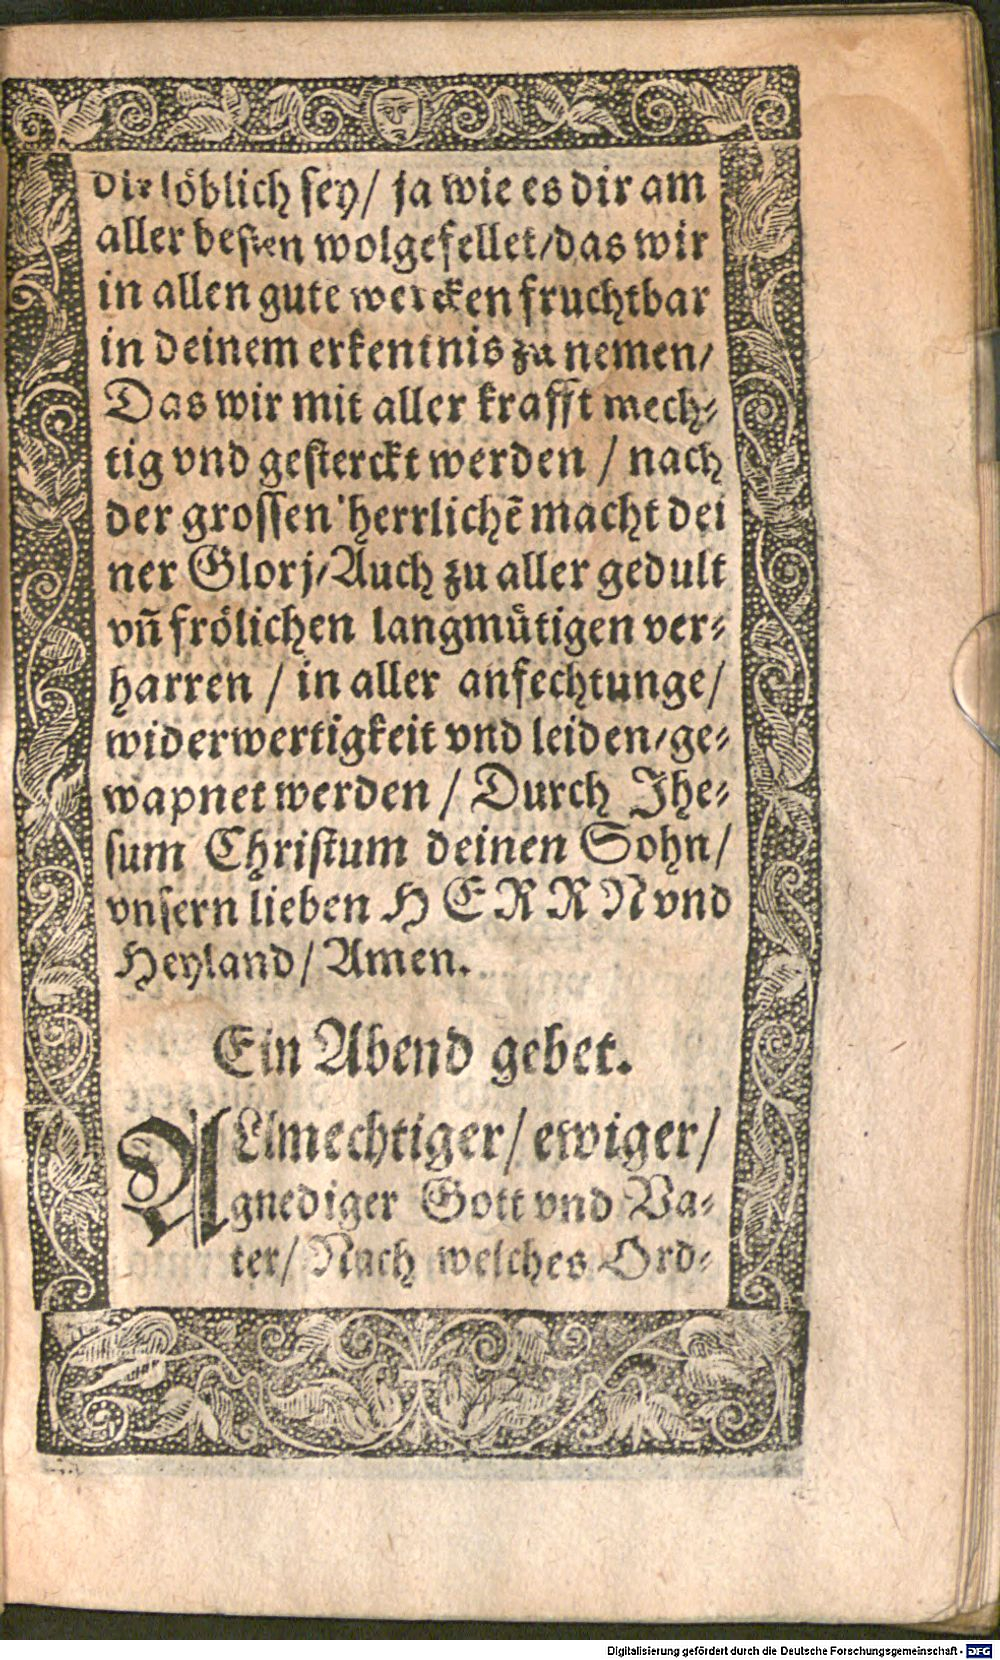 dir löblich sey/ ja wie es dir am
aller besten wolgefellet/das wir
in allen gute wercken fruchtbar
in deinem erkentnis zu nemen/
Das wir mit aller krafft mech⸗
tig vnd gesterckt werden / nach
der grossen herrlichē macht dei
ner Glorj/Auch zu aller gedult
vn̄ frölichen langmütigen ver⸗
harren / in aller anfechtunge/
widerwertigkeit vnd leiden/ge⸗
wapnet werden / Durch Jhe⸗
sum Christum deinen Sohn/
vnsern lieben HERRN vnd
Heyland/ Amen.
Ein Abend gebet.
ALlmechtiger/ ewiger/
gnediger Gott vnd Va⸗
ter/ Nach welches Ord⸗
Digitalisierung gefördert durch die Deutsche Forschungsgemeinschaft - DFG